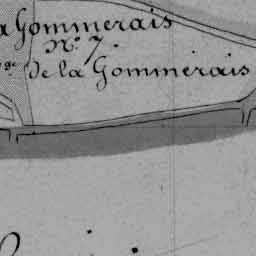 a Gommerais
N° 7.
de la Gommerais